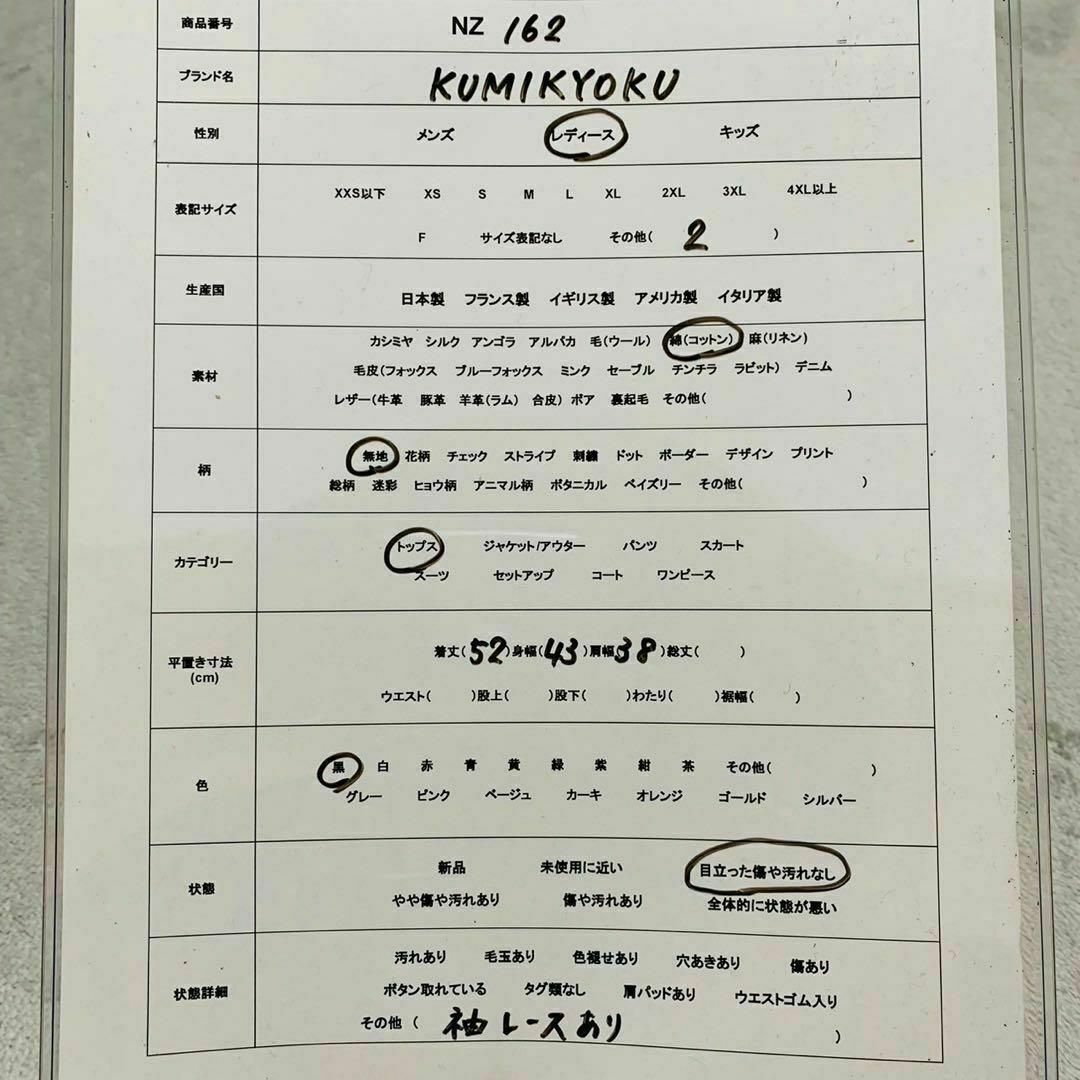 商品番号 NZ 162
ブランド名 KUMIKYOKU
性別 メンズ レディース キッズ
表記サイズ
XXS以下 XS S M L XL 2XL 3XL 4XL以上
F サイズ表記なし その他( 2 )
生産国 日本製 フランス製 イギリス製 アメリカ製 イタリア製
素材
カシミヤ シルク アンゴラ アルパカ 毛(ウール) 綿(コットン) 麻(リネン)
毛皮(フォックス ブルーフォックス ミンク セーブル チンチラ ラビット) デニム
レザー(牛革 豚革 羊革(ラム) 合皮) ボア 裏起毛 その他( )
柄
無地 花柄 チェック ストライプ 刺繍 ドット ボーダー デザイン プリント
総柄 迷彩 ヒョウ柄 アニマル柄 ボタニカル ペイズリー その他( )
カテゴリー
トップス ジャケット/アウター パンツ スカート
スーツ セットアップ コート ワンピース
平置き寸法
(cm)
着丈(52)身幅(43)肩幅(38)総丈( )
ウエスト( )股上( )股下( )わたり( )裾幅( )
色
黒 白 赤 青 黄 緑 紫 紺 茶 その他( )
グレー ピンク ベージュ カーキ オレンジ ゴールド シルバー
状態
新品 未使用に近い 目立った傷や汚れなし
やや傷や汚れあり 傷や汚れあり 全体的に状態が悪い
状態詳細
汚れあり 毛玉あり 色褪せあり 穴あきあり 傷あり
ボタン取れている タグ類なし 肩パッドあり ウエストゴム入り
その他 ( 袖レースあり )